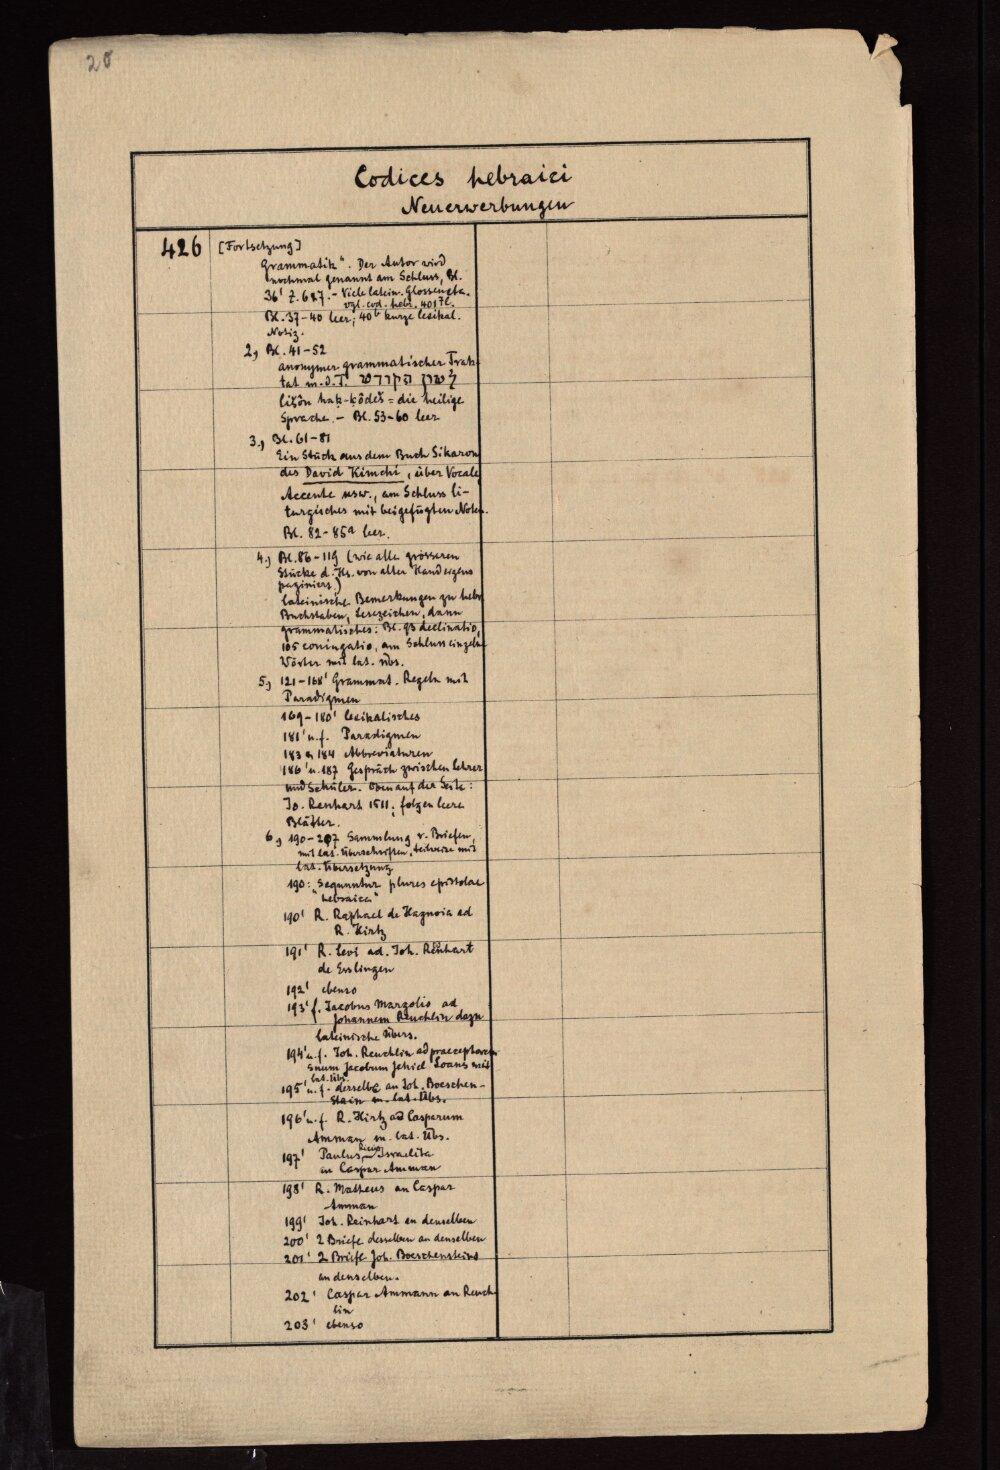 20
Codices hebraici
Neuerwerbungen
426 [Fortsetzung]
Grammatik". Der Autor wird
nochmal genannt am Schluss, Bl.
36' Z. 6 u 7. - Viele latein. Glossen
vgl. cod. hebr. 401
Bl. 37-40 leer; 40b kurze lexikal.
Notiz.
2, Bl. 41-52
anonymer grammatischer Trak-
tat m. d. T. לשון הקודש
lišôn haḳ-ḳôdeš = die heilige
Sprache. - Bl. 53-60 leer
3., Bl. 61-81
Ein Stück aus dem Buch Sikaron
des David Kimchi, über Vocale,
Accente usw., am Schluss li-
turgisches mit beigefügten Noten.
Bl. 82-85a leer.
4., Bl. 86-119 (wie alle grösseren
Stücke d. Hs. von alter Hand eigens
paginiert)
lateinische Bemerkungen zu hebr.
Buchstaben, Lesezeichen, dann
grammatisches: Bl. 93 declinatio,
105 coniugatio, am Schluss einzelne
Wörter mit lat. Übs.
5, 121-168' Grammat. Regeln mit
Paradigmen
169-180' lexikalisches
181' u. f. Paradigmen
183 u 184 Abbreviaturen
186' u. 187 Gespräch zwischen Lehrer
und Schüler. Oben auf der Seite:
Jo. Renhart 1511; folgen leere
Blätter.
6, 190-207 Sammlung v. Briefen,
mit lat. Überschriften, teilweise mit
lat. Übersetzung
190: Sequuntur plures epistolae
"hebraica"
190' R. Raphael de Hagnoia ad
R. Hirtz
191' R. Levi ad. Joh. Renhart
de Esslingen
192' ebenso
193' f. Jacobus Margolio ad
Johannem Reuchlin dazu
lateinische Übers.
194' u. f. Joh. Reuchlin ad praeceptorem
suum Jacobum Jehiel Loans mit
lat. Übs.
195' u. f. derselbe an Joh. Boeschen-
stain m. lat. Übs.
196' u. f. R. Hirtz ad Casparum
Amman m. lat. Übs.
197' Paulus Ricius Israelita
an Caspar Amman
198' R. Matheus an Caspar
Amman
199' Joh. Reinhart an denselben
200' 2 Briefe desselben an denselben
201' 2 Briefe Joh. Boeschensteins
an denselben.
202' Caspar Ammann an Reuch-
lin
203' ebenso